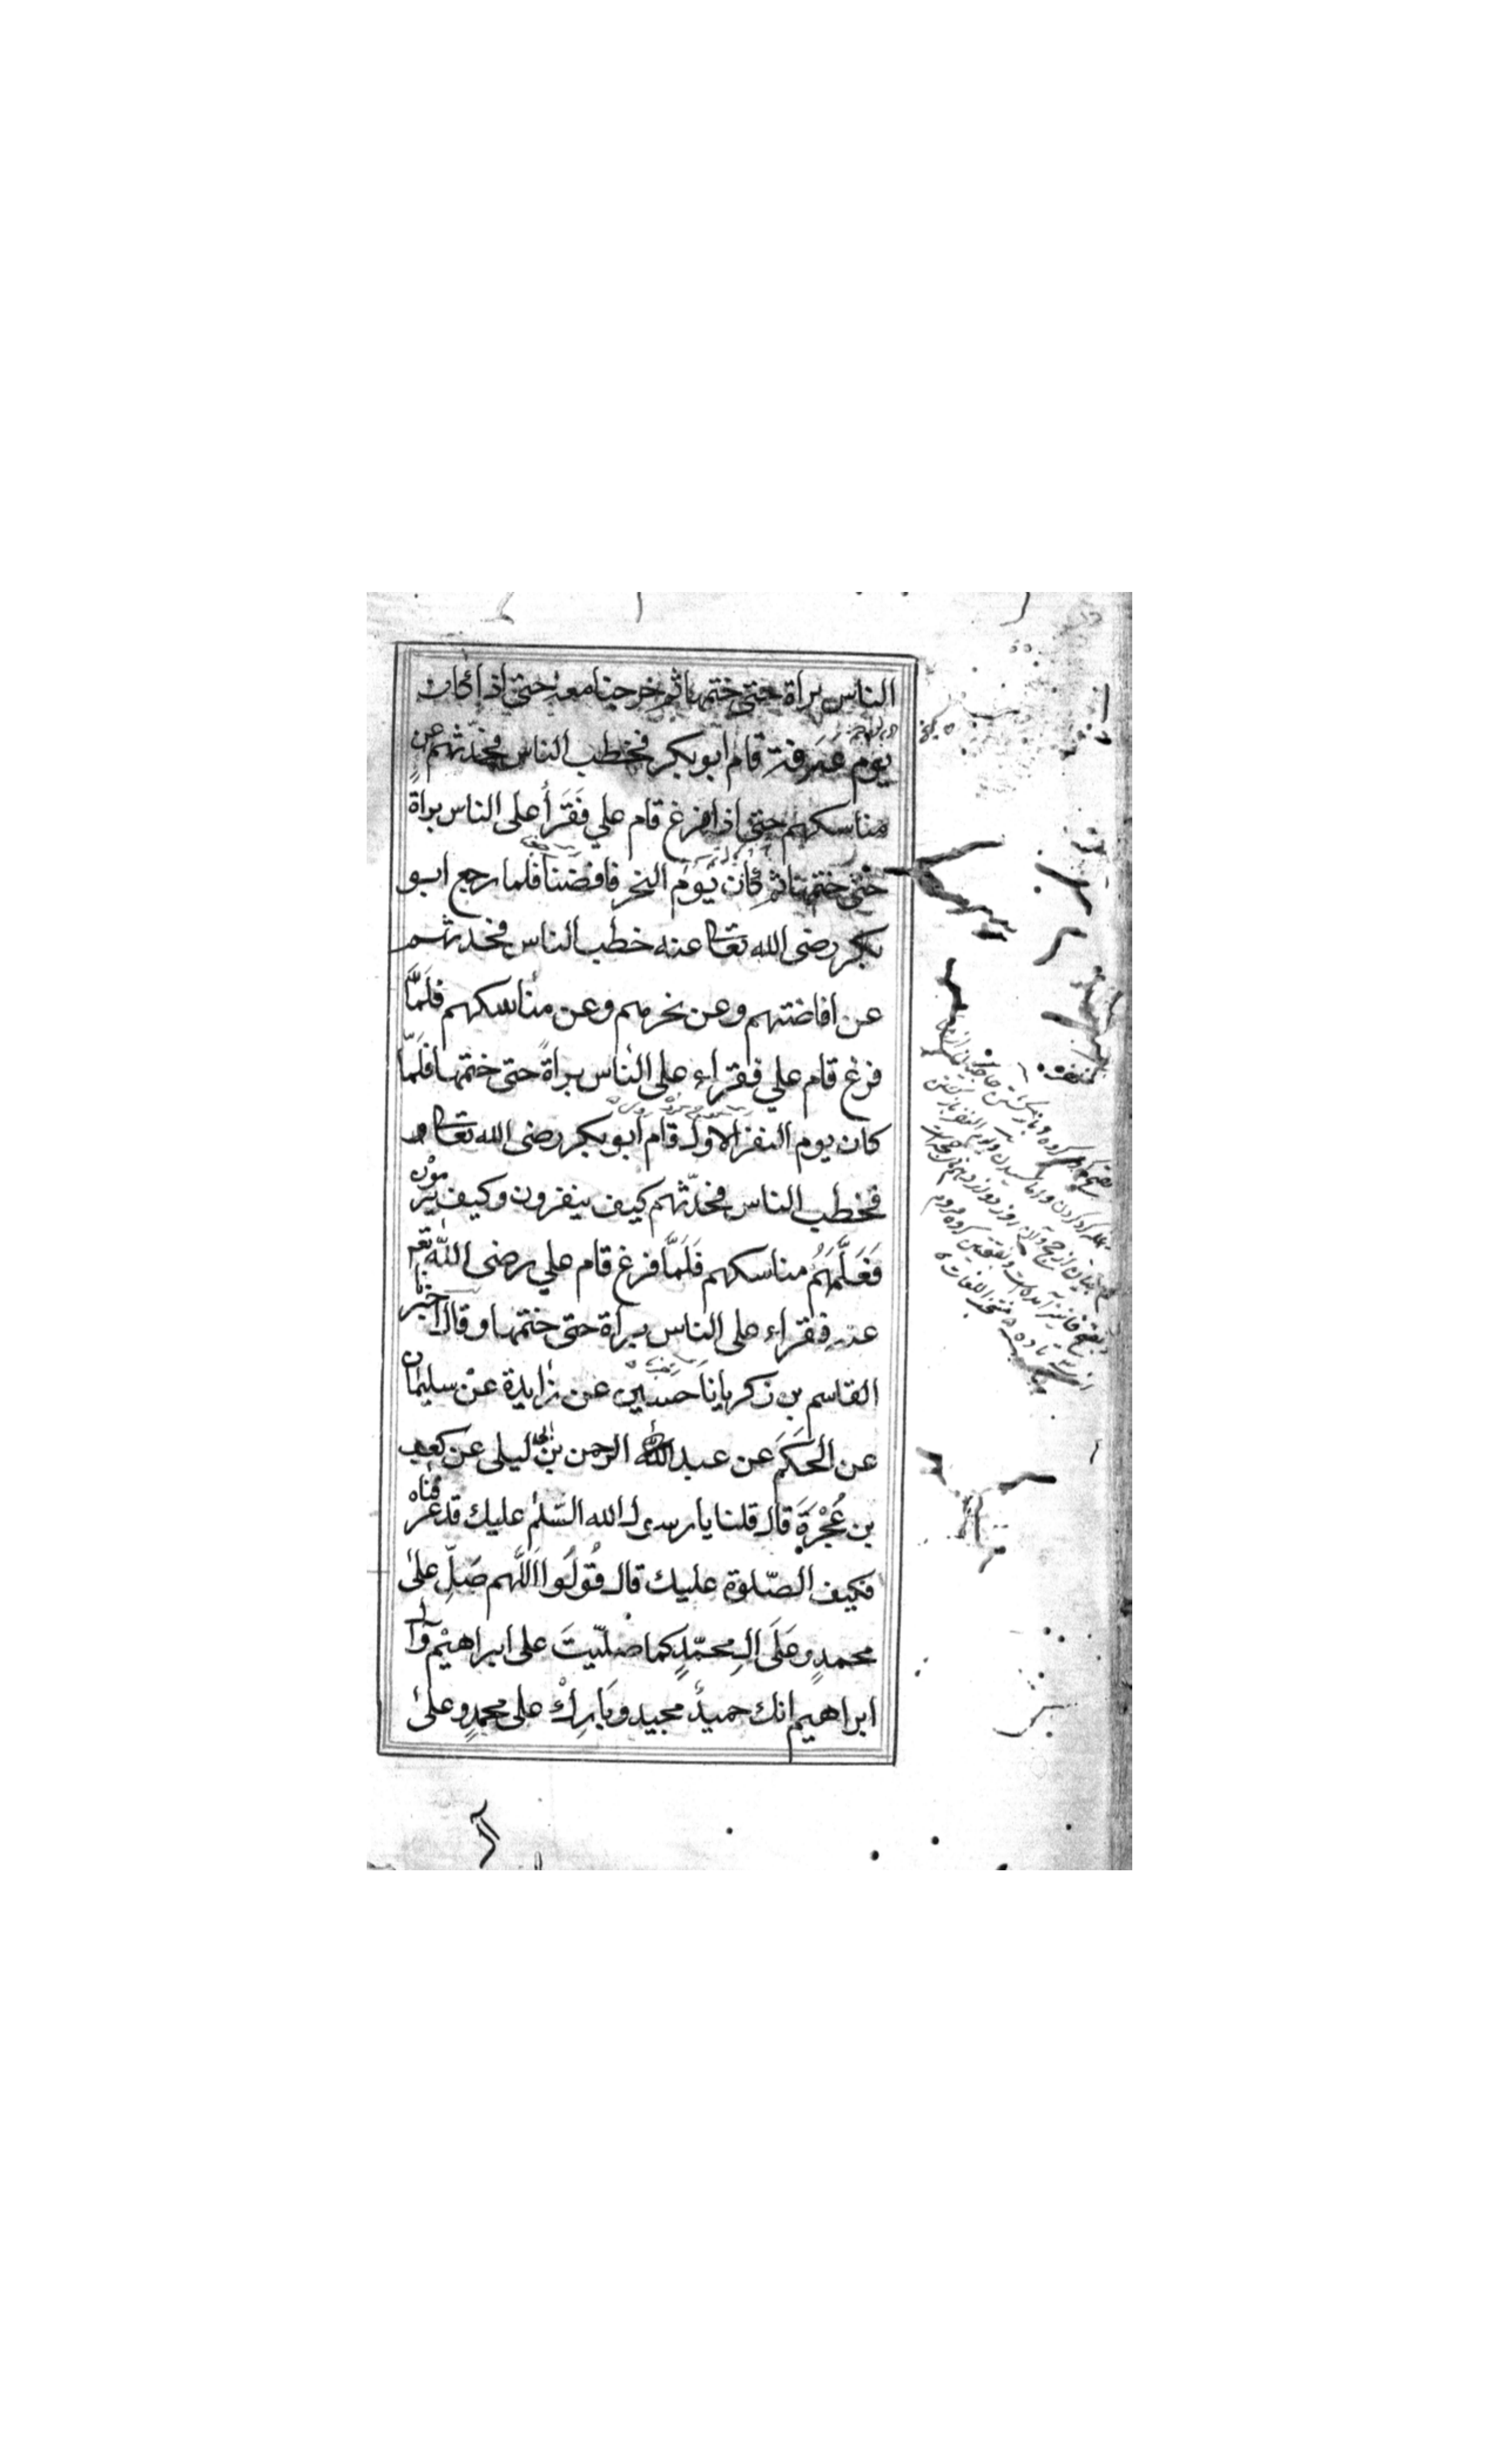 الناس براة حتى ختمها ثم خرجنا معه حتى اذا كان
يوم عَرَفة قام ابو بكر فخطب الناس فحدّثهم عن
مناسكهم حتى اذا فرغ قام علي فَقَرَأ على الناس براةً
حتى ختمها ثم كان يَومَ النحر فافضنا فلما رجع ابو
بكر رضى الله تعالى عنه خطب الناس فحدثهم
عن افاضتهم وعن نحرهم وعن مناسكهم فلَمَّا
فرغ قام علي فقراء على الناس براةً حتى ختمها فلمّا
كان يوم النفر الاول قام ابو بكر رضى الله تعالى
فخطب الناس فحدّثهم كيف ينفرون وكيف يرمون
فَعَلَّمَهُمُ مناسكهم فَلَمَّا فرغ قام علي رضى اللّٰه تعه
عنه فقراء على الناس براة حتى ختمها وقال اخبرنا
القاسم بن زكريا ناَ حسين عن زايدة عنْ سليمان
عن الحَكَم عن عبد الرحمن بن ابى ليلى عن كعب
بن عُجْرَةَ قال قلنا يا رسول الله السّلم عليك قد عرفناه
فكيف الصّلوة عليك قال قُولُوا اَللّٰهم صَلِّ علىٰ
محمدٍ وعَلَى الِ محمّدٍ كما صلّيتَ على ابراهيْم وآل
ابراهيم انك حميدٌ مجيد وبَارِكْ على محمدٍ وعلىٰ
آل